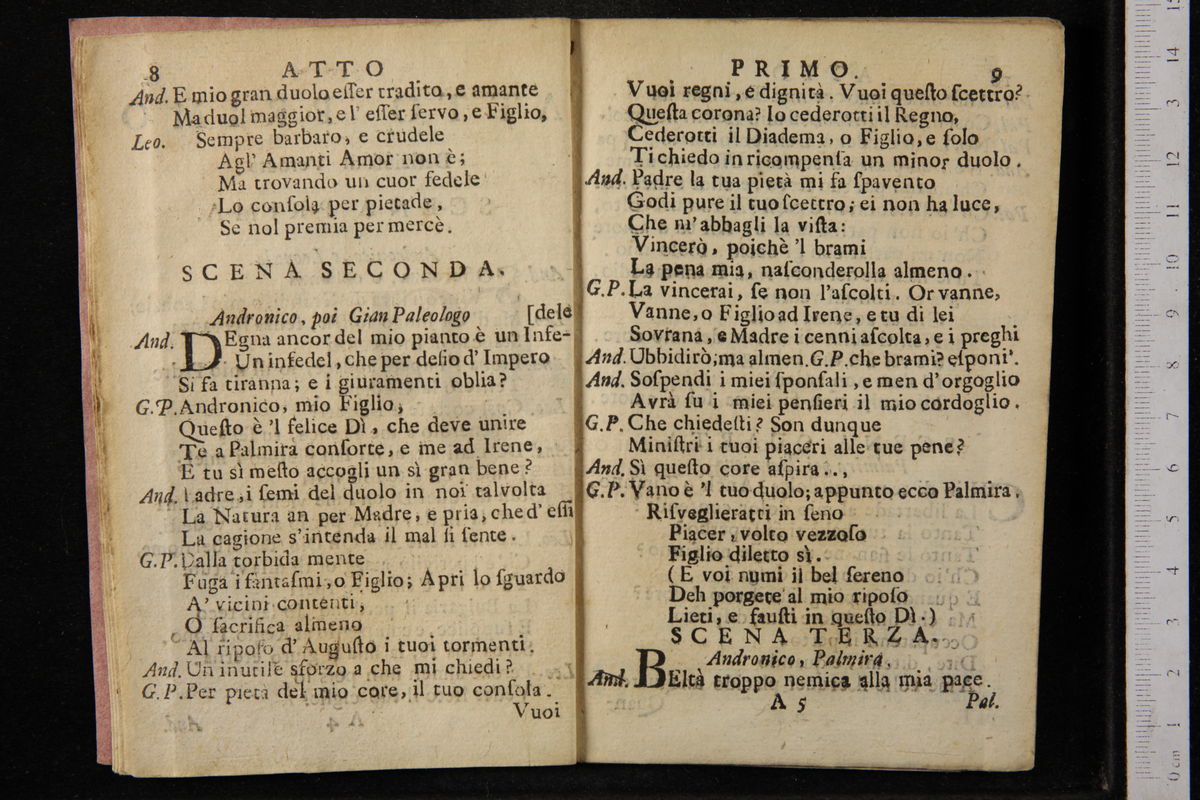 8 ATTO
And. E mio gran duolo eſſer tradito, e amante
Ma duol maggior, e l' eſſer ſervo, e Figlio,
Leo. Sempre barbaro, e crudele
Agl' Amanti Amor non è;
Ma trovando un cuor fedele
Lo conſola per pietade,
Se nol premia per mercè.
SCENA SECONDA.
Andronico, poi Gian Paleologo [dele
And. DEgna ancor del mio pianto è un Infe-
Un infedel, che per deſio d' Impero
Si fa tiranna; e i giuramenti oblia?
G.P. Andronico, mio Figlio,
Queſto è 'l felice Dì, che deve unire
Te a Palmira conſorte, e me ad Irene,
E tu sì meſto accogli un sì gran bene?
And. Padre, i ſemi del duolo in noi talvolta
La Natura an per Madre, e pria, che d' eſſi
La cagione s'intenda il mal ſi ſente.
G.P. Dalla torbida mente
Fuga i fantaſmi, o Figlio; Apri lo ſguardo
A' vicini contenti,
O ſacrifica almeno
Al ripoſo d' Auguſto i tuoi tormenti.
And. Un inutile sforzo a che mi chiedi?
G.P. Per pietà del mio core, il tuo conſola.
Vuoi
PRIMO. 9
Vuoi regni, e dignità. Vuoi queſto ſcettro?
Queſta corona? Io cederotti il Regno,
Cederotti il Diadema, o Figlio, e ſolo
Ti chiedo in ricompenſa un minor duolo.
And. Padre la tua pietà mi fa ſpavento
Godi pure il tuo ſcettro; ei non ha luce,
Che m' abbagli la viſta:
Vincerò, poichè 'l brami
La pena mia, naſconderolla almeno.
G.P. La vincerai, ſe non l'aſcolti. Or vanne,
Vanne, o Figlio ad Irene, e tu di lei
Sovrana, e Madre i cenni aſcolta, e i preghi
And. Ubbidirò; ma almen. G.P. che brami? eſponi.
And. Soſpendi i miei ſponſali, e men d' orgoglio
Avrà ſu i miei penſieri il mio cordoglio.
G.P. Che chiedeſti? Son dunque
Miniſtri i tuoi piaceri alle tue pene?
And. Sì queſto core aſpira..,
G.P. Vano è 'l tuo duolo; appunto ecco Palmira.
Riſveglieratti in ſeno
Piacer, volto vezzoſo
Figlio diletto sì.
(E voi numi il bel ſereno
Deh porgete al mio ripoſo
Lieti, e fauſti in queſto Dì.)
SCENA TERZA.
Andronico, Palmira.
And. BEltà troppo nemica alla mia pace.
A 5 Pal.